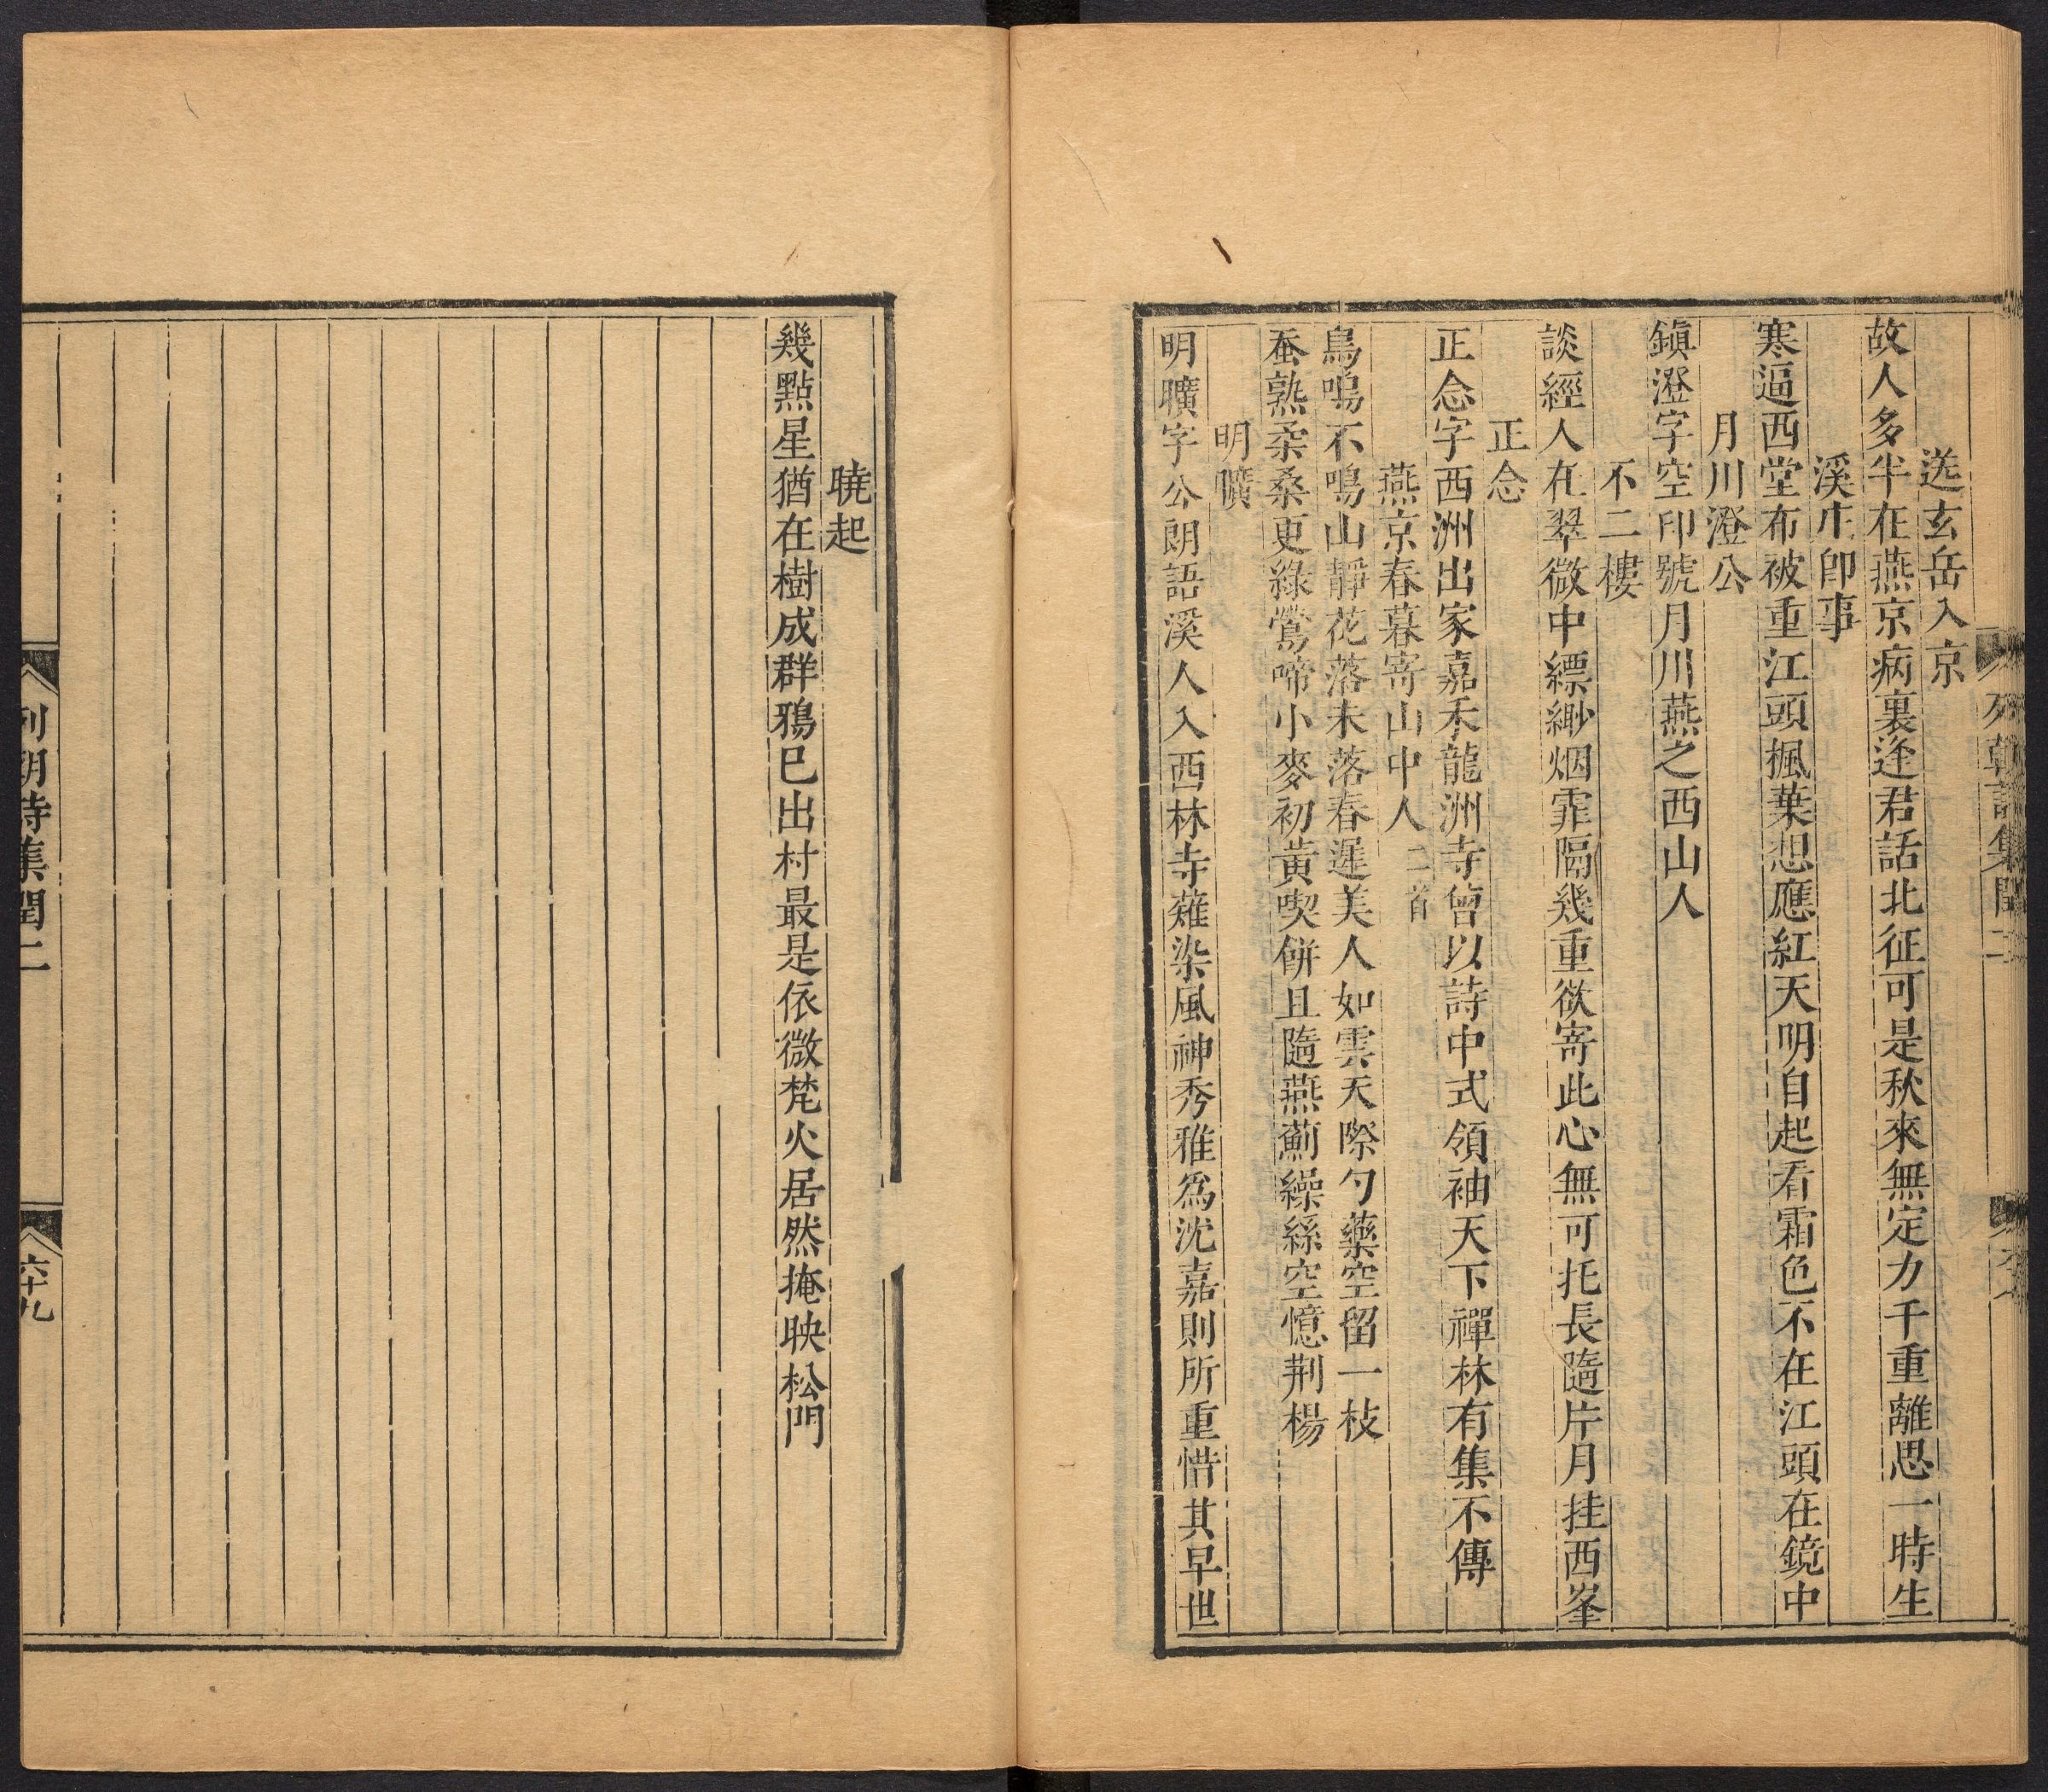 送玄岳入京
故人多半在燕京病裏逢君話北征可是秋來無定力千重離思一時生
溪上卽事
寒逼西堂布被重江頭楓葉想應紅天明自起看霜色不在江頭在鏡中
月川澄公
鎮澄字空印號月川燕之西山人
不二樓
談經人在翠微中縹緲烟霏隔幾重欲寄此心無可托長隨片月挂西峯
正念
正念字西洲出家嘉禾龍洲寺曾以詩中式領袖天下禪林有集不傳
燕京春暮寄山中人二首
鳥鳴不鳴山靜花落未落春遲美人如雲天際勺藥空留一枝
蚕熟柔桑更綠鶯啼小麥初黃喫餅且隨燕薊繰絲空憶荆楊
明曠
明曠字公朗語溪人入西林寺薙染風神秀雅爲沈嘉則所重惜其早世
曉起
幾點星猶在樹成群鴉已出村最是依微梵火居然掩映松門
列朝詩集閏二
六十九